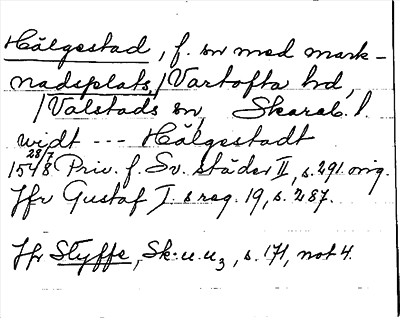 Hälgestad, f. sn med mark-
nadsplats, / Vartofta hd,
/ Valstads sn, Skarab. l.
widt --- Hälgestadt
28/7
1548 Priv. f. Sv. städer II, s. 291 orig.
Jfr Gustaf I:s reg. 19, s. 287.
Jfr Styffe, Sk. u. u3, s. 171, not 4.